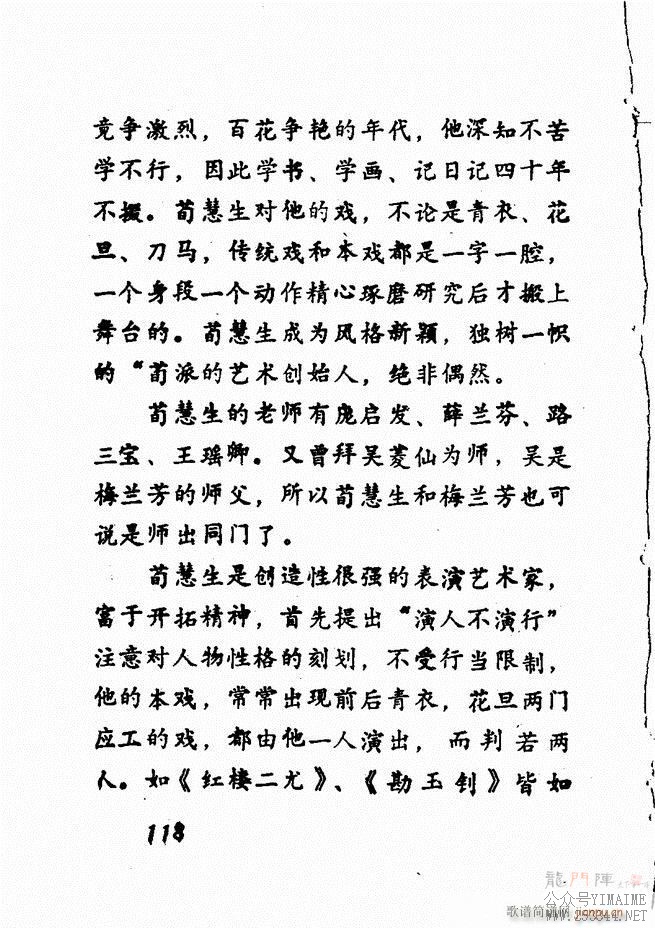 竞争激烈，百花争艳的年代，他深知不苦
学不行，因此学书、学画、记日记四十年
不辍。荀慧生对他的戏，不论是青衣、花
旦、刀马，传统戏和本戏都是一字一腔，
一个身段一个动作精心琢磨研究后才搬上
舞台的。荀慧生成为风格新颖，独树一帜
的“荀派的艺术创始人，绝非偶然。
荀慧生的老师有庞启发、薛兰芬、路
三宝、王瑶卿。又曾拜吴菱仙为师，吴是
梅兰芳的师父，所以荀慧生和梅兰芳也可
说是师出同门了。
荀慧生是创造性很强的表演艺术家，
富于开拓精神，首先提出“演人不演行”
注意对人物性格的刻划，不受行当限制，
他的本戏，常常出现前后青衣，花旦两门
应工的戏，都由他一人演出，而判若两
人。如《红楼二尤》、《勘玉钏》皆如
118
龍門陣
公众号YIMAIME
歌谱简谱网